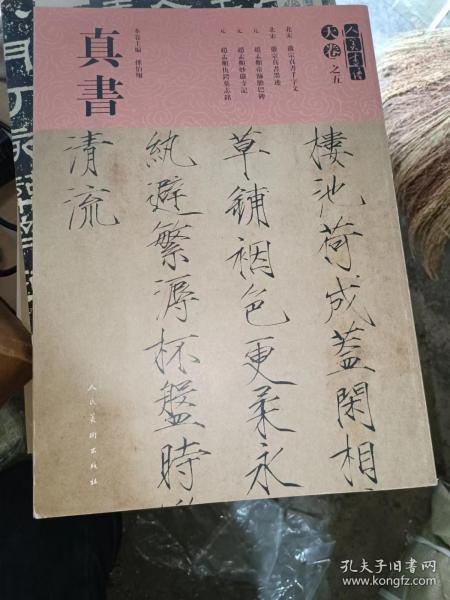 人民書法
天卷之五
北宋 徽宗真書千字文
北宋 徽宗真書墨迹
元 趙孟頫帝師膽巴碑
元 趙孟頫妙嚴寺記
元 趙孟頫仇鍔墓志銘
真書
本卷主編
棲池荷成蓋閑相
草鋪裀色更柔永
紈避繁溽杯盤時
清流
人民美術出版社
孔夫子旧书网
www.kongfz.com